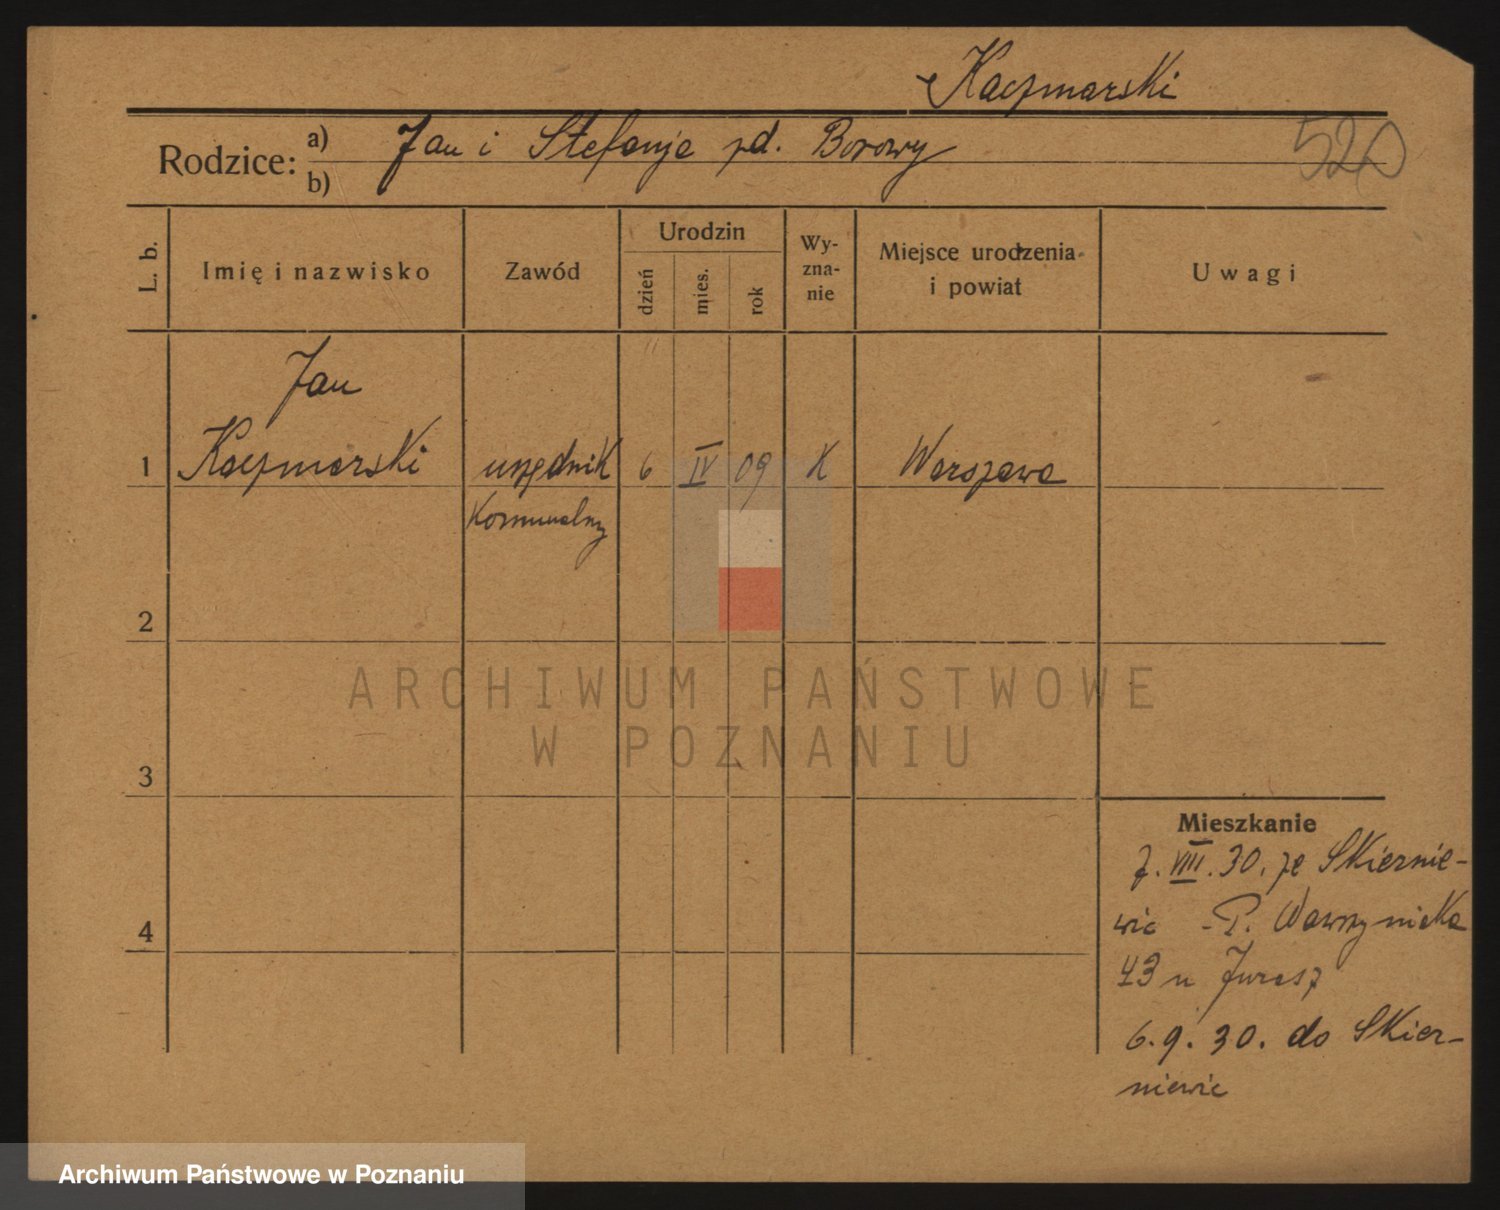 Kaczmarski
Rodzice: a) Jan i Stefanja zd. Borowy
b)
520
L. b.
Imię i nazwisko
Zawód
Urodzin
dzień
mies.
rok
Wy-
zna-
nie
Miejsce urodzenia
i powiat
Uwagi
Jan
1 Kaczmarski urzędnik 6 IV 09 K Warszawa
komunalny
2
3
4
ARCHIWUM PAŃSTWOWE
W POZNANIU
Mieszkanie
7. VIII. 30. ze Skiernie-
wic - P. Wawrzyniaka
43 u Jurasz
6. 9. 30. do Skier-
niewic
Archiwum Państwowe w Poznaniu